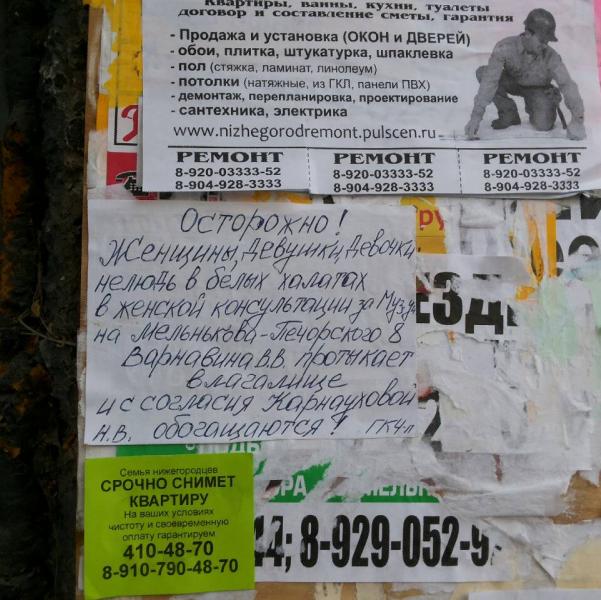 Квартиры, ванны, кухни, туалеты
договор и составление сметы, гарантия
- Продажа и установка (ОКОН и ДВЕРЕЙ)
- обои, плитка, штукатурка, шпаклевка
- пол (стяжка, ламинат, линолеум)
- потолки (натяжные, из ГКЛ, панели ПВХ)
- демонтаж, перепланировка, проектирование
- сантехника, электрика
www.nizhegorodremont.pulscen.ru
РЕМОНТ РЕМОНТ РЕМОНТ
8-920-03333-52 8-920-03333-52 8-920-03333-52
8-904-928-3333 8-904-928-3333 8-904-928-3333
Осторожно!
Женщины, Девушки, Девочки
нелюдь в белых халатах
в женской консультации за Муз.уч
на Мельнькова-Печорского 8
Варнавина В.В. протыкает
влагалище
и с согласия Карнауховой
н.в. обогащаются! ГК4л
ЕЗД
Семья нижегородцев
СРОЧНО СНИМЕТ
КВАРТИРУ
На ваших условиях
чистоту и своевременную
оплату гарантируем
410-48-70
8-910-790-48-70
44; 8-929-052-9